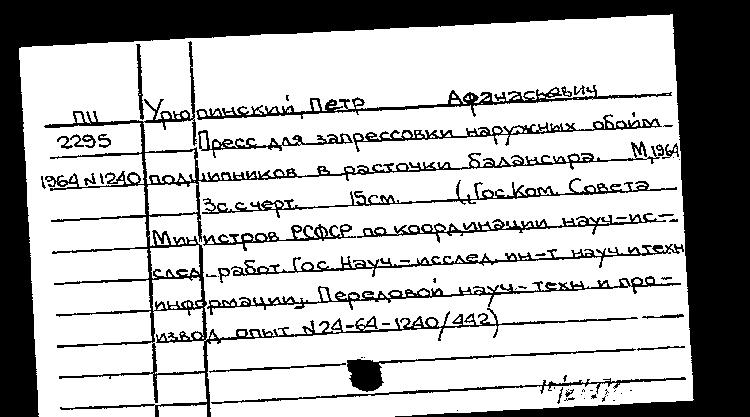 ПЦ Урюпинский, Петр Афанасьевич
2295 Пресс для запрессовки наружных обойм
1964 N1240 подшипников в расточки балансира. М, 1964
3с. с черт. 15см. (, Гос. Ком. Совета
Министров РСФСР по координации науч-ис-
след. работ. Гос. Науч.-исслед. ин-т науч. и техн
информации, Передовой науч.-техн. и про-
извод. опыт. N24-64-1240/442)